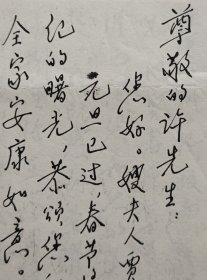 尊敬的许先生：
您好。嫂夫人贾
元旦已过，春节
纪的曙光，恭颂您
全家安康如意。